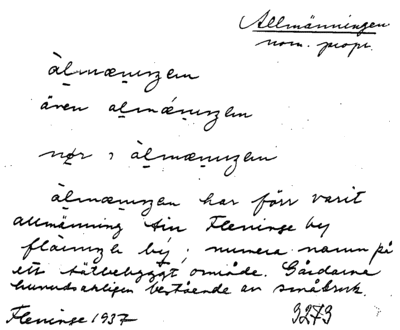 Allmänningen
nom. propr.
àlmænıŋen
även almǽnıŋen
àlmænıŋen
àlmænıŋen har förr varit
allmänning till Fleninge by
numera namn på
ett tätbebyggt område. Gårdarna
huvudsakligen bestående av småbruk.
Fleninge 1937 9273